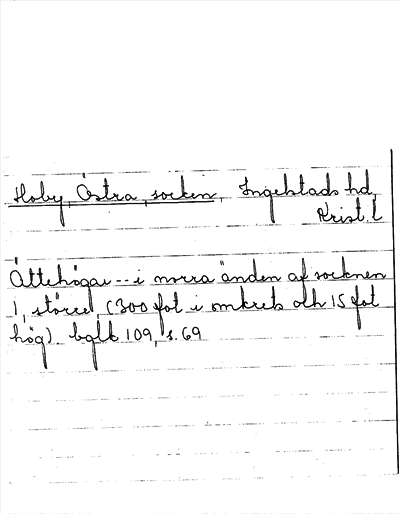 Hoby, Östra, socken, Ingelstads hd,
Krist. l
Ättehögar -- i norra änden af socknen
1, större, (300 fot i omkrets och 15 fot
hög). bglb 109, s. 69